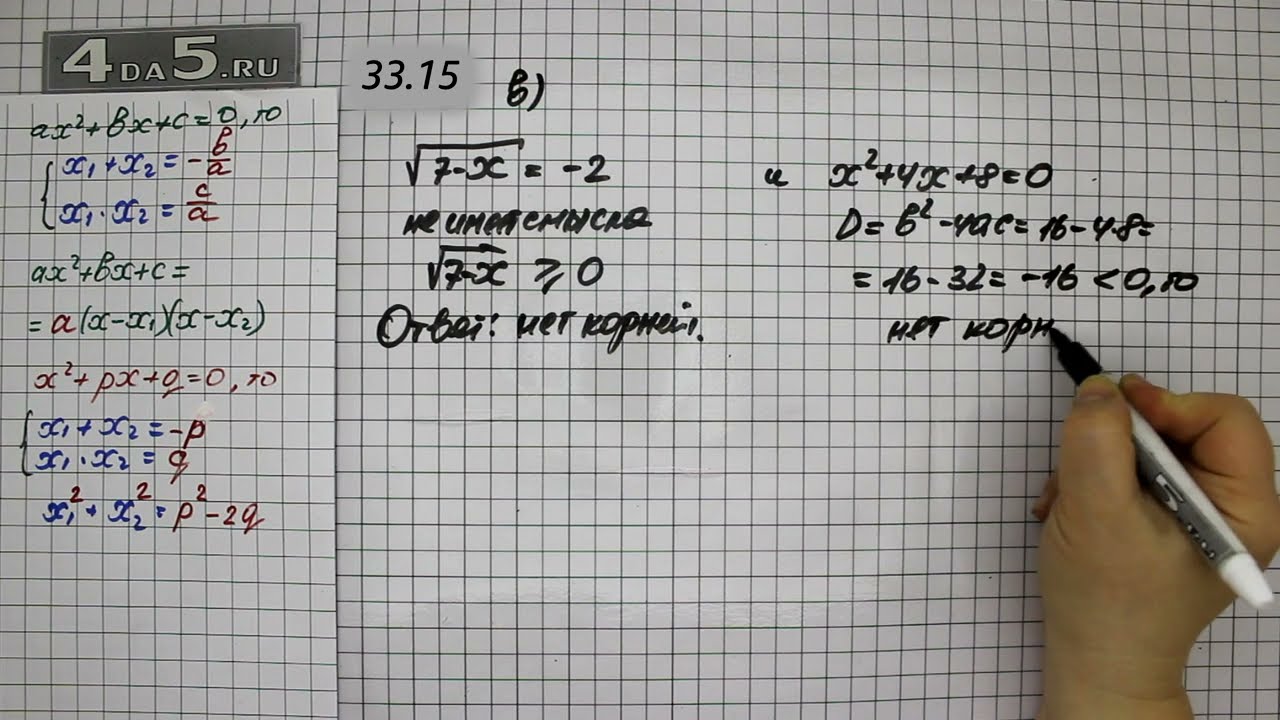 4DA5.RU
ax²+bx+c=0, то
x₁+x₂=-b/a
x₁·x₂=c/a
ax²+bx+c=
=a(x-x₁)(x-x₂)
x²+px+q=0, то
x₁+x₂=-p
x₁·x₂=q
x₁²+x₂²=p²-2q
33.15
в)
√7-x = -2
не имеет смысла
√7-x ⩾ 0
Ответ: нет корней.
и x²+4x+8=0
D=b²-4ac=16-4·8=
=16-32=-16<0, то
нет корн